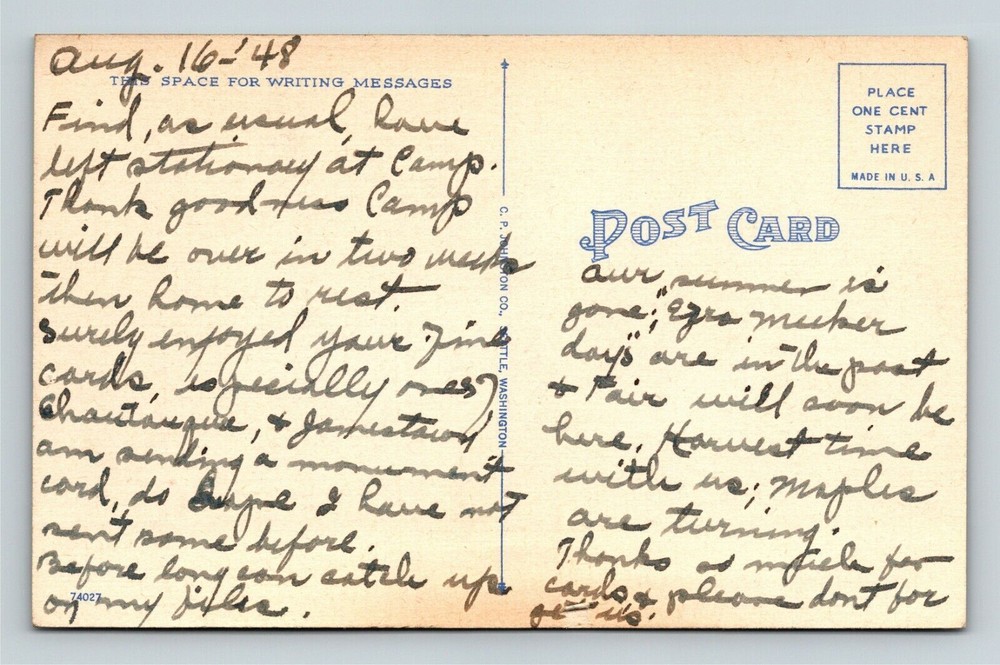 Aug. 16-'48
THIS SPACE FOR WRITING MESSAGES
Find, as usual, have
left stationary at Camp.
Thank goodness Camp
will be over in two weeks
then home to rest.
Surely enjoyed your fine
cards, especially ones of
Chautauqua, & Jamestown
am sending a monument
card, do hope I have not
sent same before.
Before long can catch up
on my files.
74027
C. P. JOHNSTON CO., SEATTLE, WASHINGTON
PLACE
ONE CENT
STAMP
HERE
MADE IN U. S. A
POST CARD
Our summer is
gone; "Ezra Meeker
days" are in the past
& Fair will soon be
here. Harvest time
with us; Maples
are turning.
Thanks so much for
cards & please dont for
get us.